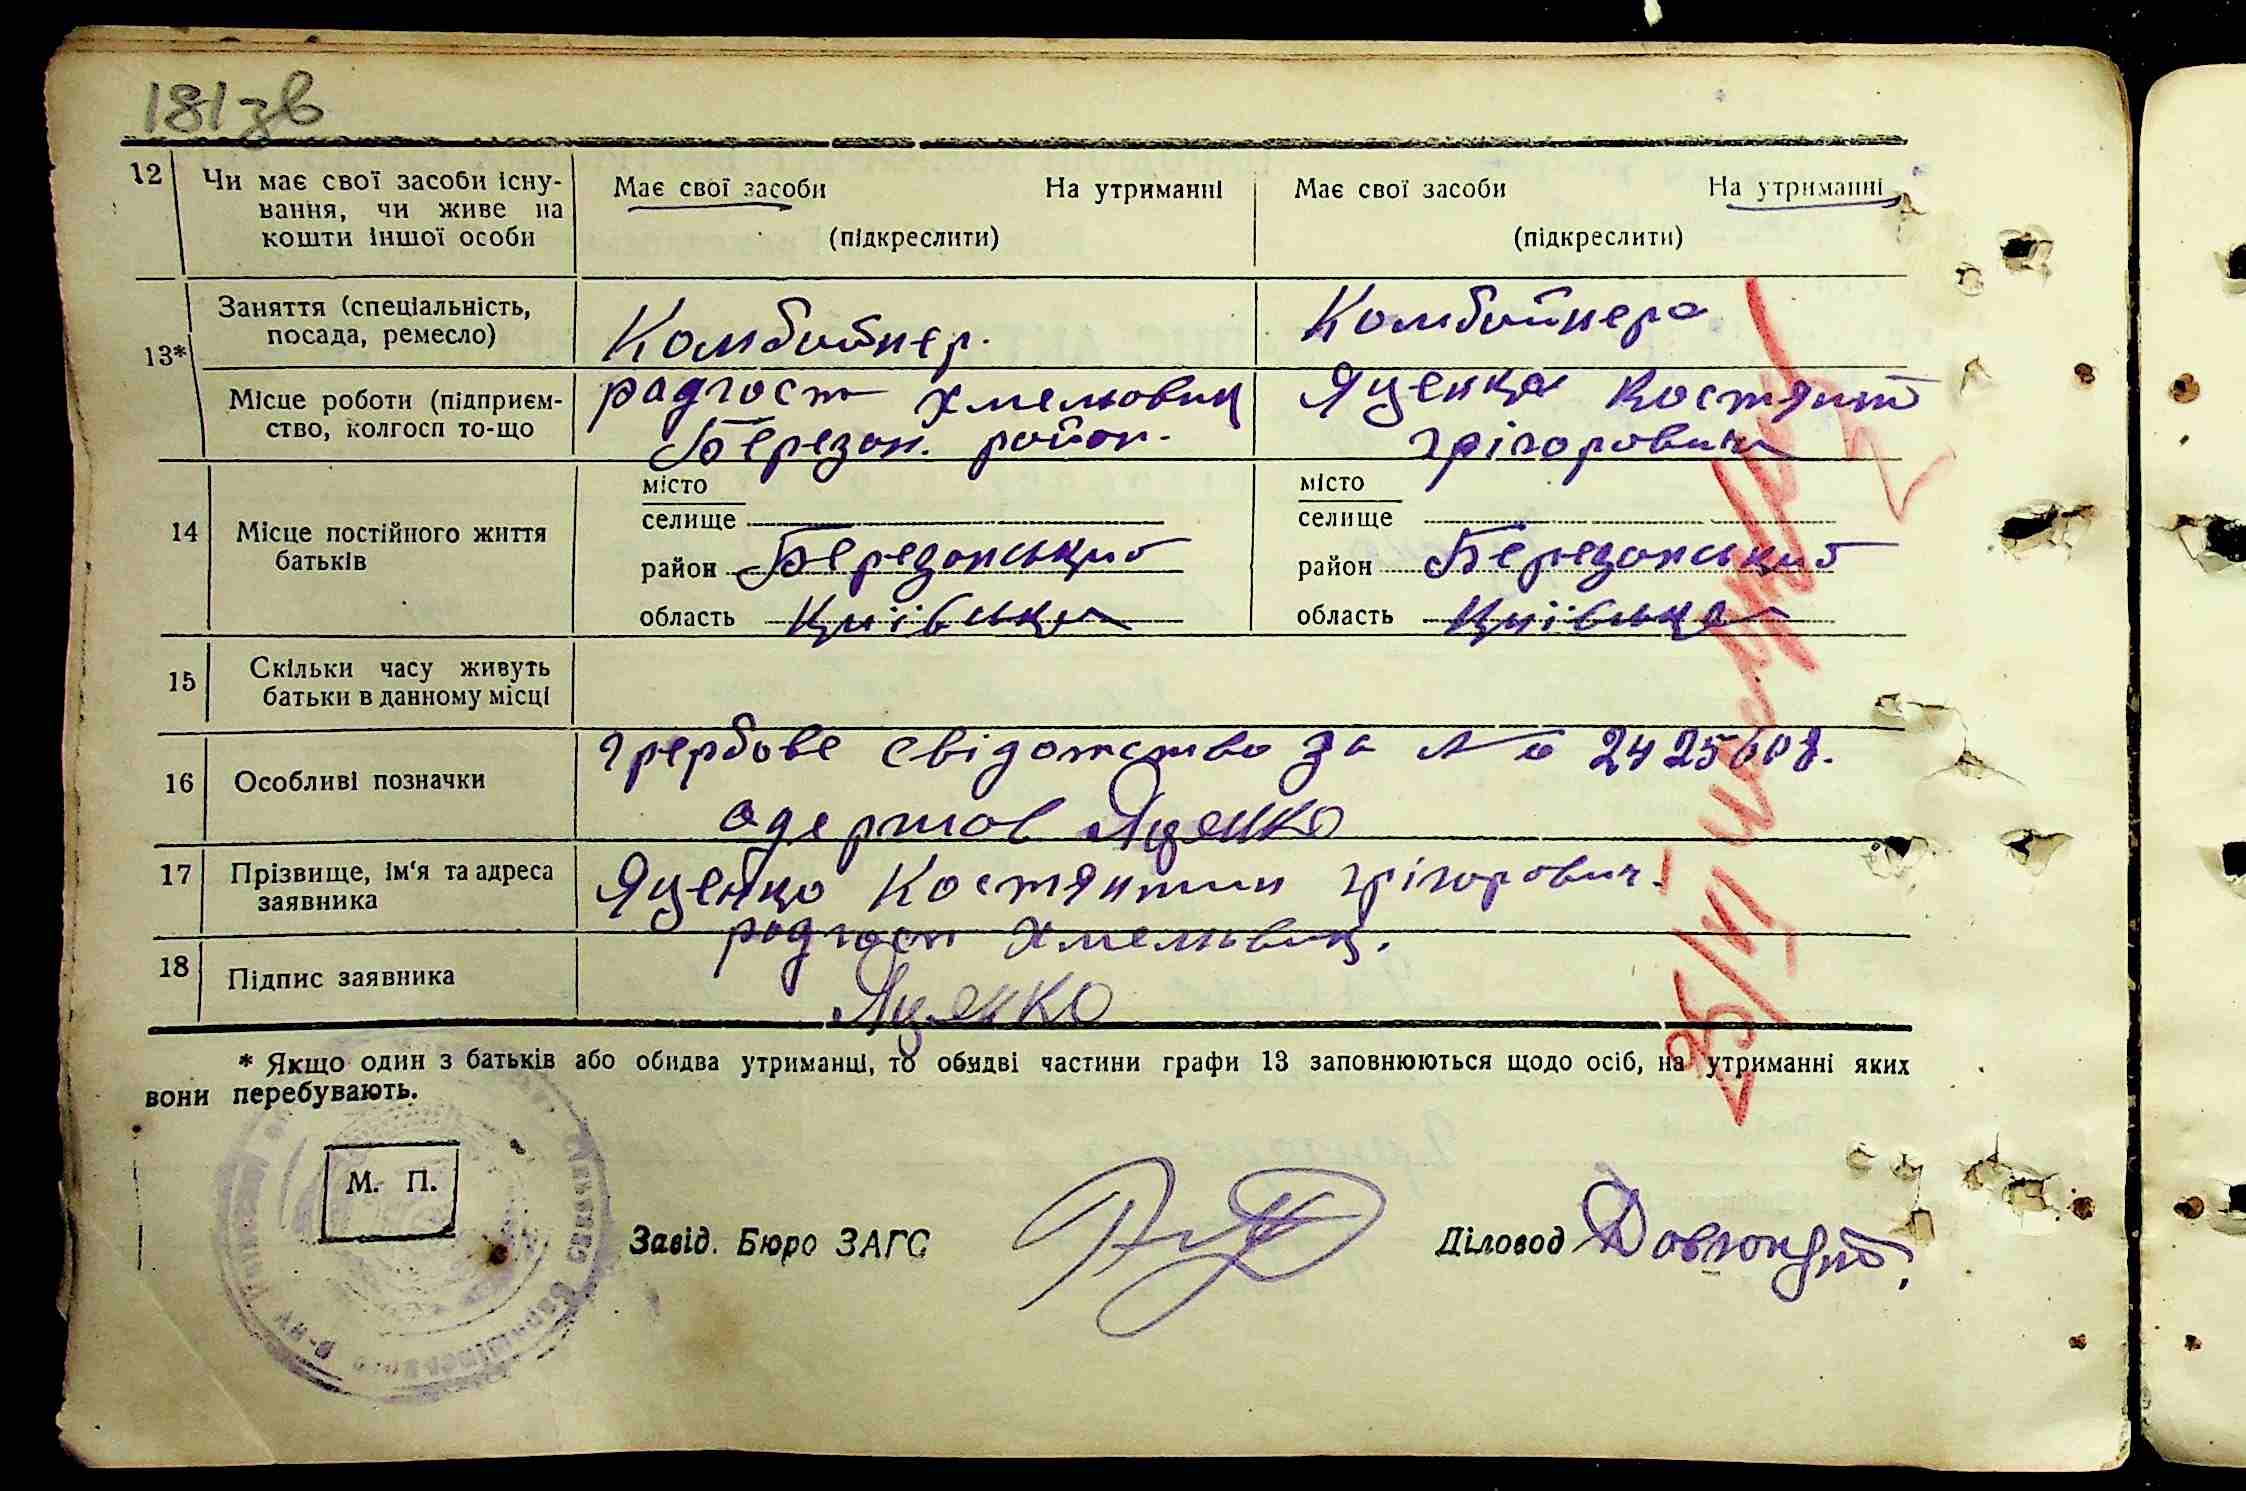 181зв
12 Чи має свої засоби існу- Має свої засоби На утриманні Має свої засоби На утриманні
вання, чи живе на
кошти іншої особи (підкреслити) (підкреслити)
13* Заняття (спеціальність, Комбайнер. Комбайнера
посада, ремесло)
Місце роботи (підприєм- радгосп Хмельовик Яценка Костянт
ство, колгосп то-що Березан. район. Грігорович
14 Місце постійного життя батьків
місто місто
селище селище
район Березанський район Березанський
область Київська область Київська
15 Скільки часу живуть
батьки в данному місці
16 Особливі позначки
Грербове свідотство за № 2425608.
одержав Яценко
17 Прізвище, ім'я та адреса Яценко Костянтин Грігорович.
заявника радгосп Хмельовик.
18 Підпис заявника Яценко
* Якщо один з батьків або обидва утриманці, то обидві частини графи 13 заповнюються щодо осіб, на утриманні яких
вони перебувають.
М. П.
Завід. Бюро ЗАГС Діловод